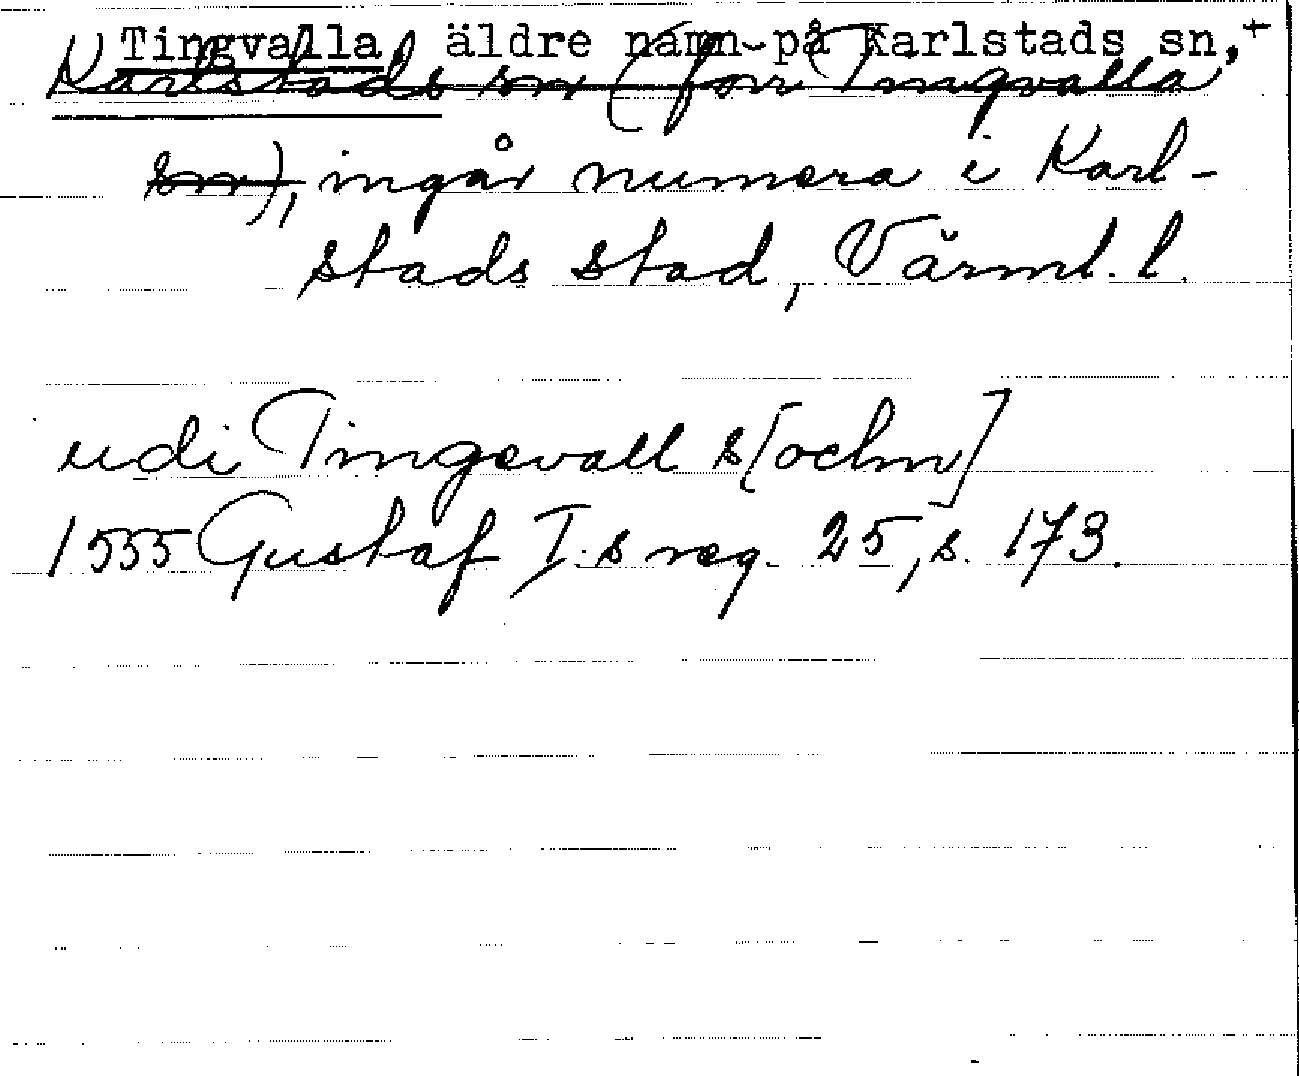 Tingvalla, äldre namn på Karlstads sn,+
Karlstads sn (förr Tingvalla
sn), ingår numera i Karl-
stads stad, Värml. l.
udi Tingevall s[ochn]
1555 Gustaf I:s reg. 25, s. 173.